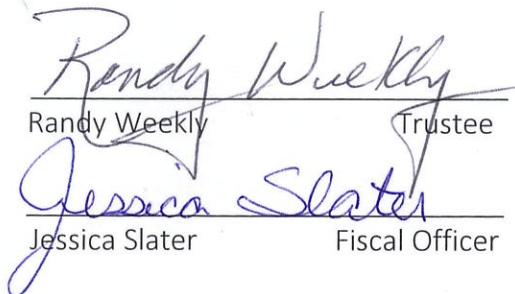 Randy Weekly
Randy Weekly Trustee
Jessica Slater
Jessica Slater Fiscal Officer